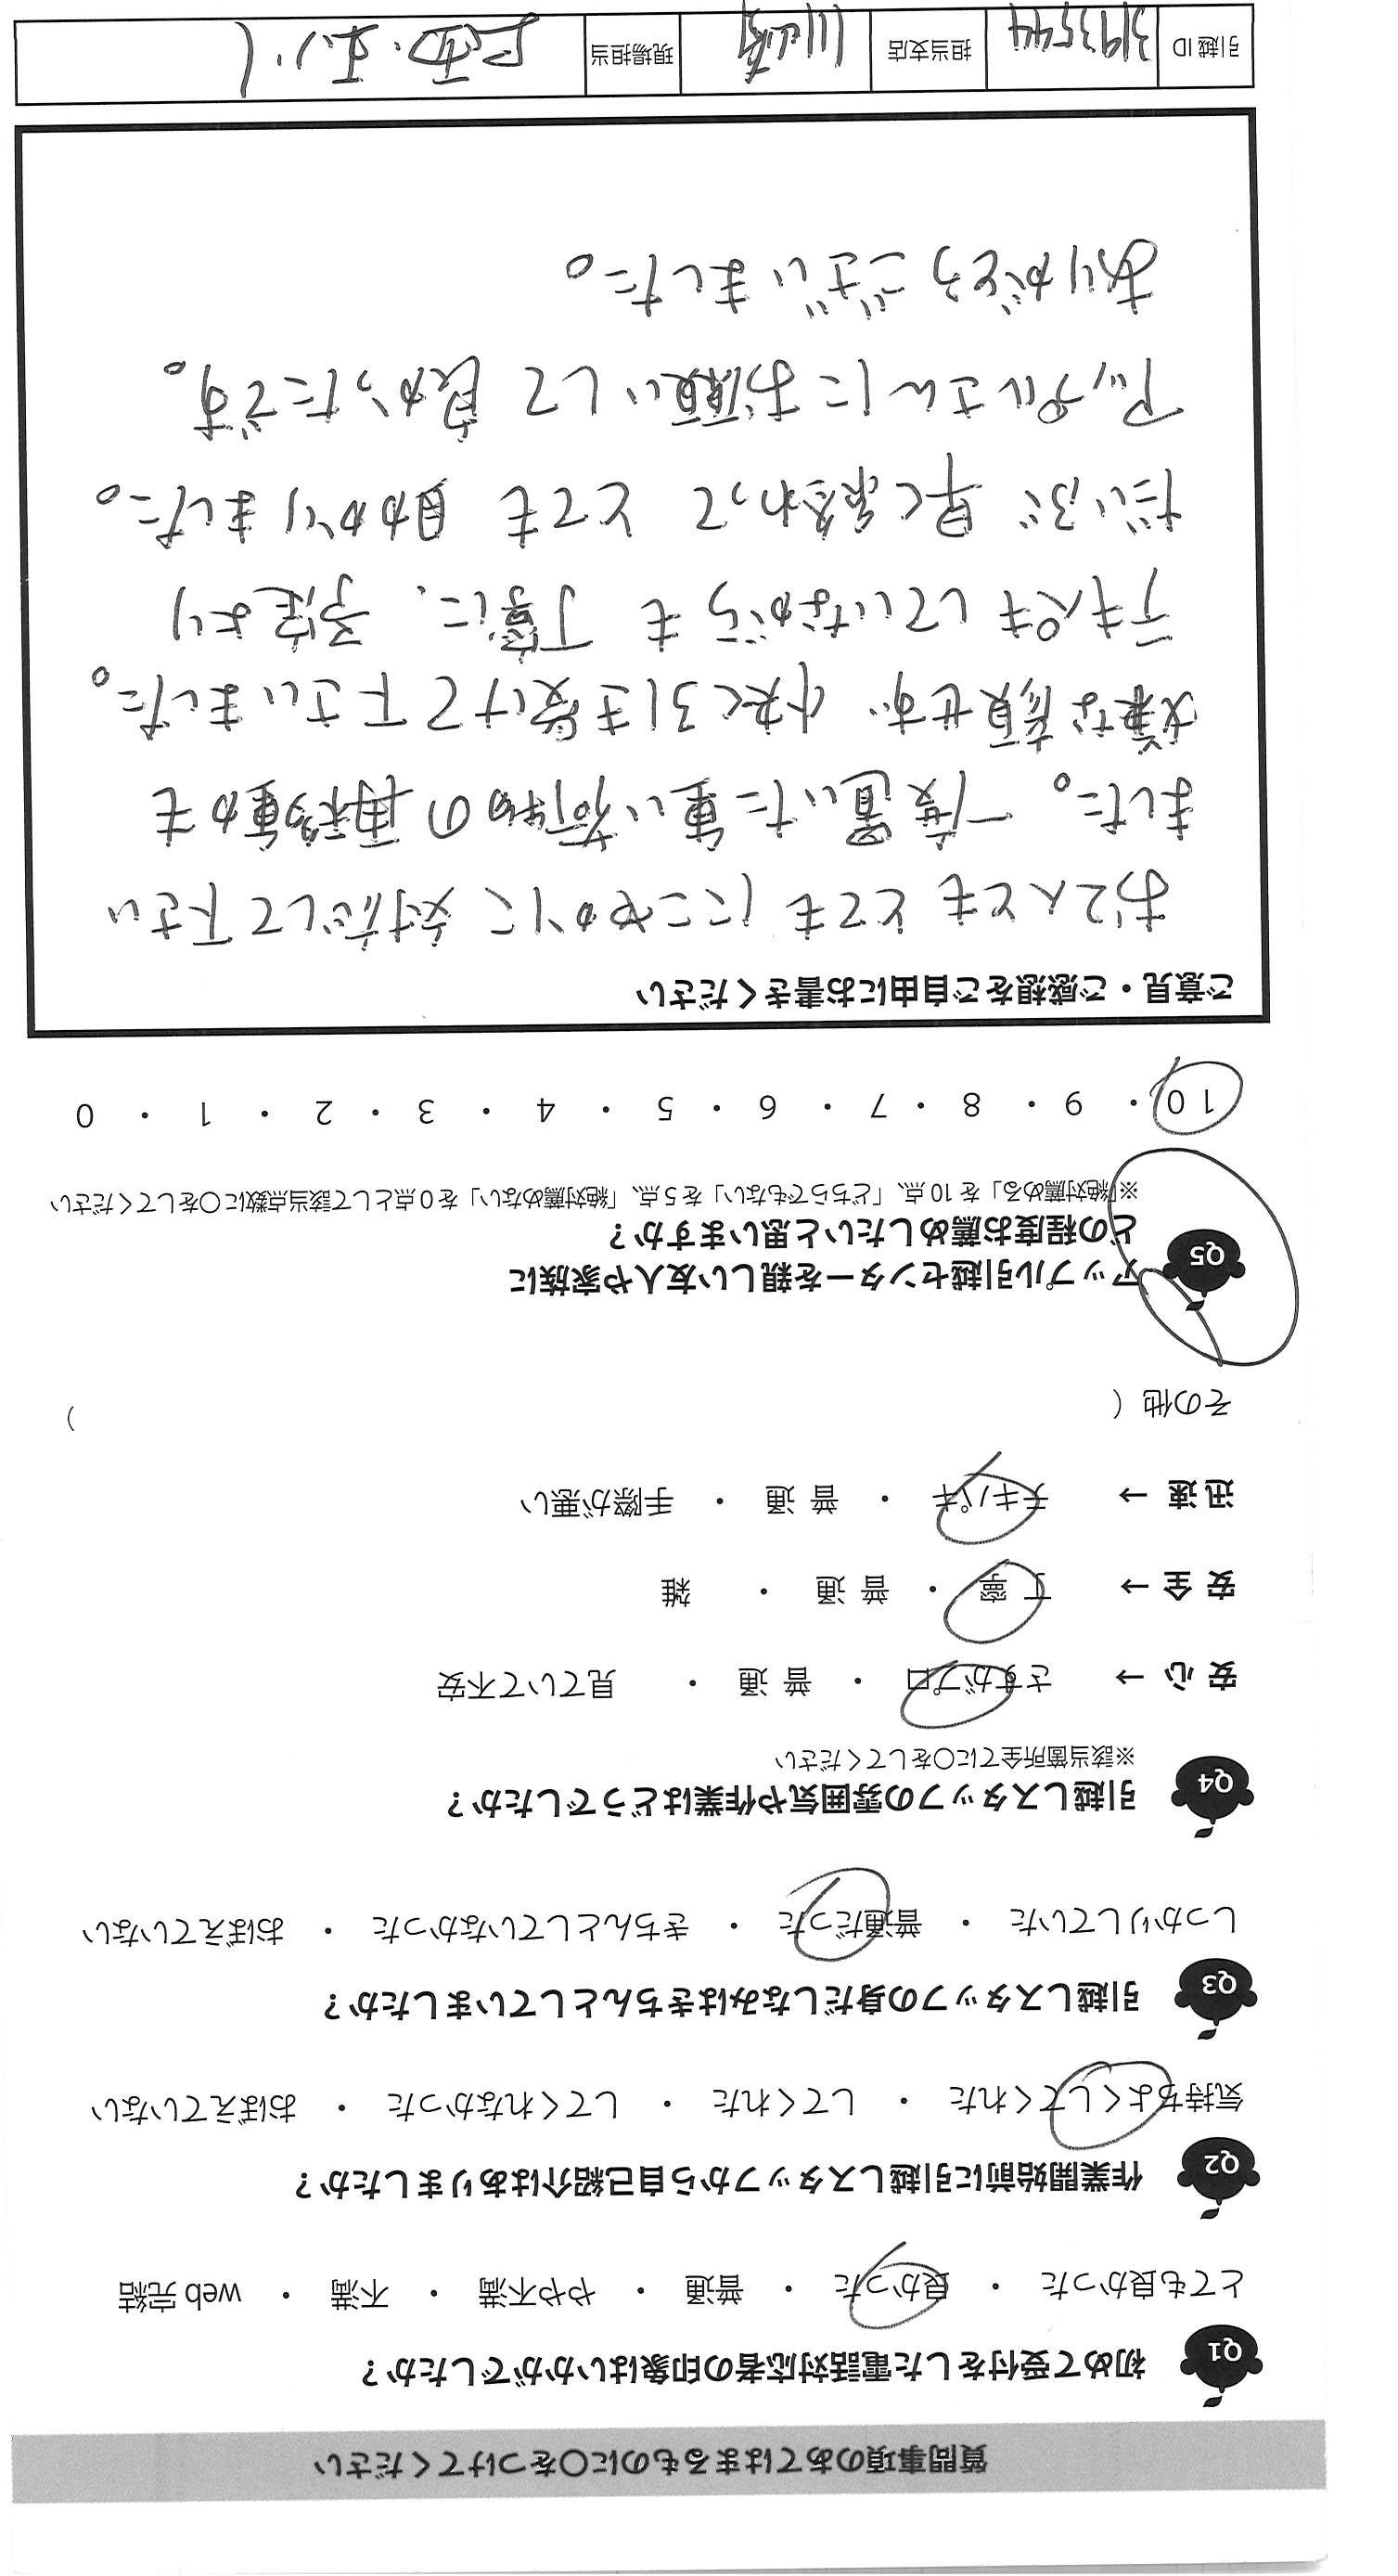 質問事項のあてはまるものに〇をつけてください
Q1 初めて受付をした電話対応者の印象はいかがでしたか？
とても良かった ・ 良かった ・ 普通 ・ やや不満 ・ 不満 ・ web 完結
Q2 作業開始前に引越しスタッフから自己紹介はありましたか？
気持ちよくしてくれた ・ してくれた ・ してくれなかった ・ おぼえていない
Q3 引越しスタッフの身だしなみはきちんとしていましたか？
しっかりしていた ・ 普通だった ・ きちんとしていなかった ・ おぼえていない
Q4 引越しスタッフの雰囲気や作業はどうでしたか？
※該当箇所全てに〇をしてください
安 心 → さすがプロ ・ 普 通 ・ 見ていて不安
安 全 → 丁 寧 ・ 普 通 ・ 雑
迅 速 → テキパキ ・ 普 通 ・ 手際が悪い
その他（ ）
Q5 アップル引越センターを親しい友人や家族に
どの程度お薦めしたいと思いますか？
※「絶対薦める」を 10 点、「どちらでもない」を 5 点、「絶対薦めない」を 0 点として該当点数に〇をしてください
10 ・ 9 ・ 8 ・ 7 ・ 6 ・ 5 ・ 4 ・ 3 ・ 2 ・ 1 ・ 0
ご意見・ご感想をご自由にお書きください
お2人とも とても にこやかに 対応して下さい
ました。一度置いた重い荷物の再移動も
嫌な顔せず 快く引き受けて下さいました。
テキパキしていながらも 丁寧に、予定より
だいぶ 早く終わって とても 助かりました。
アップルさんにお願いして 良かったです。
ありがとうございました。
引越 ID 3193544 担当支店 川崎 現場担当